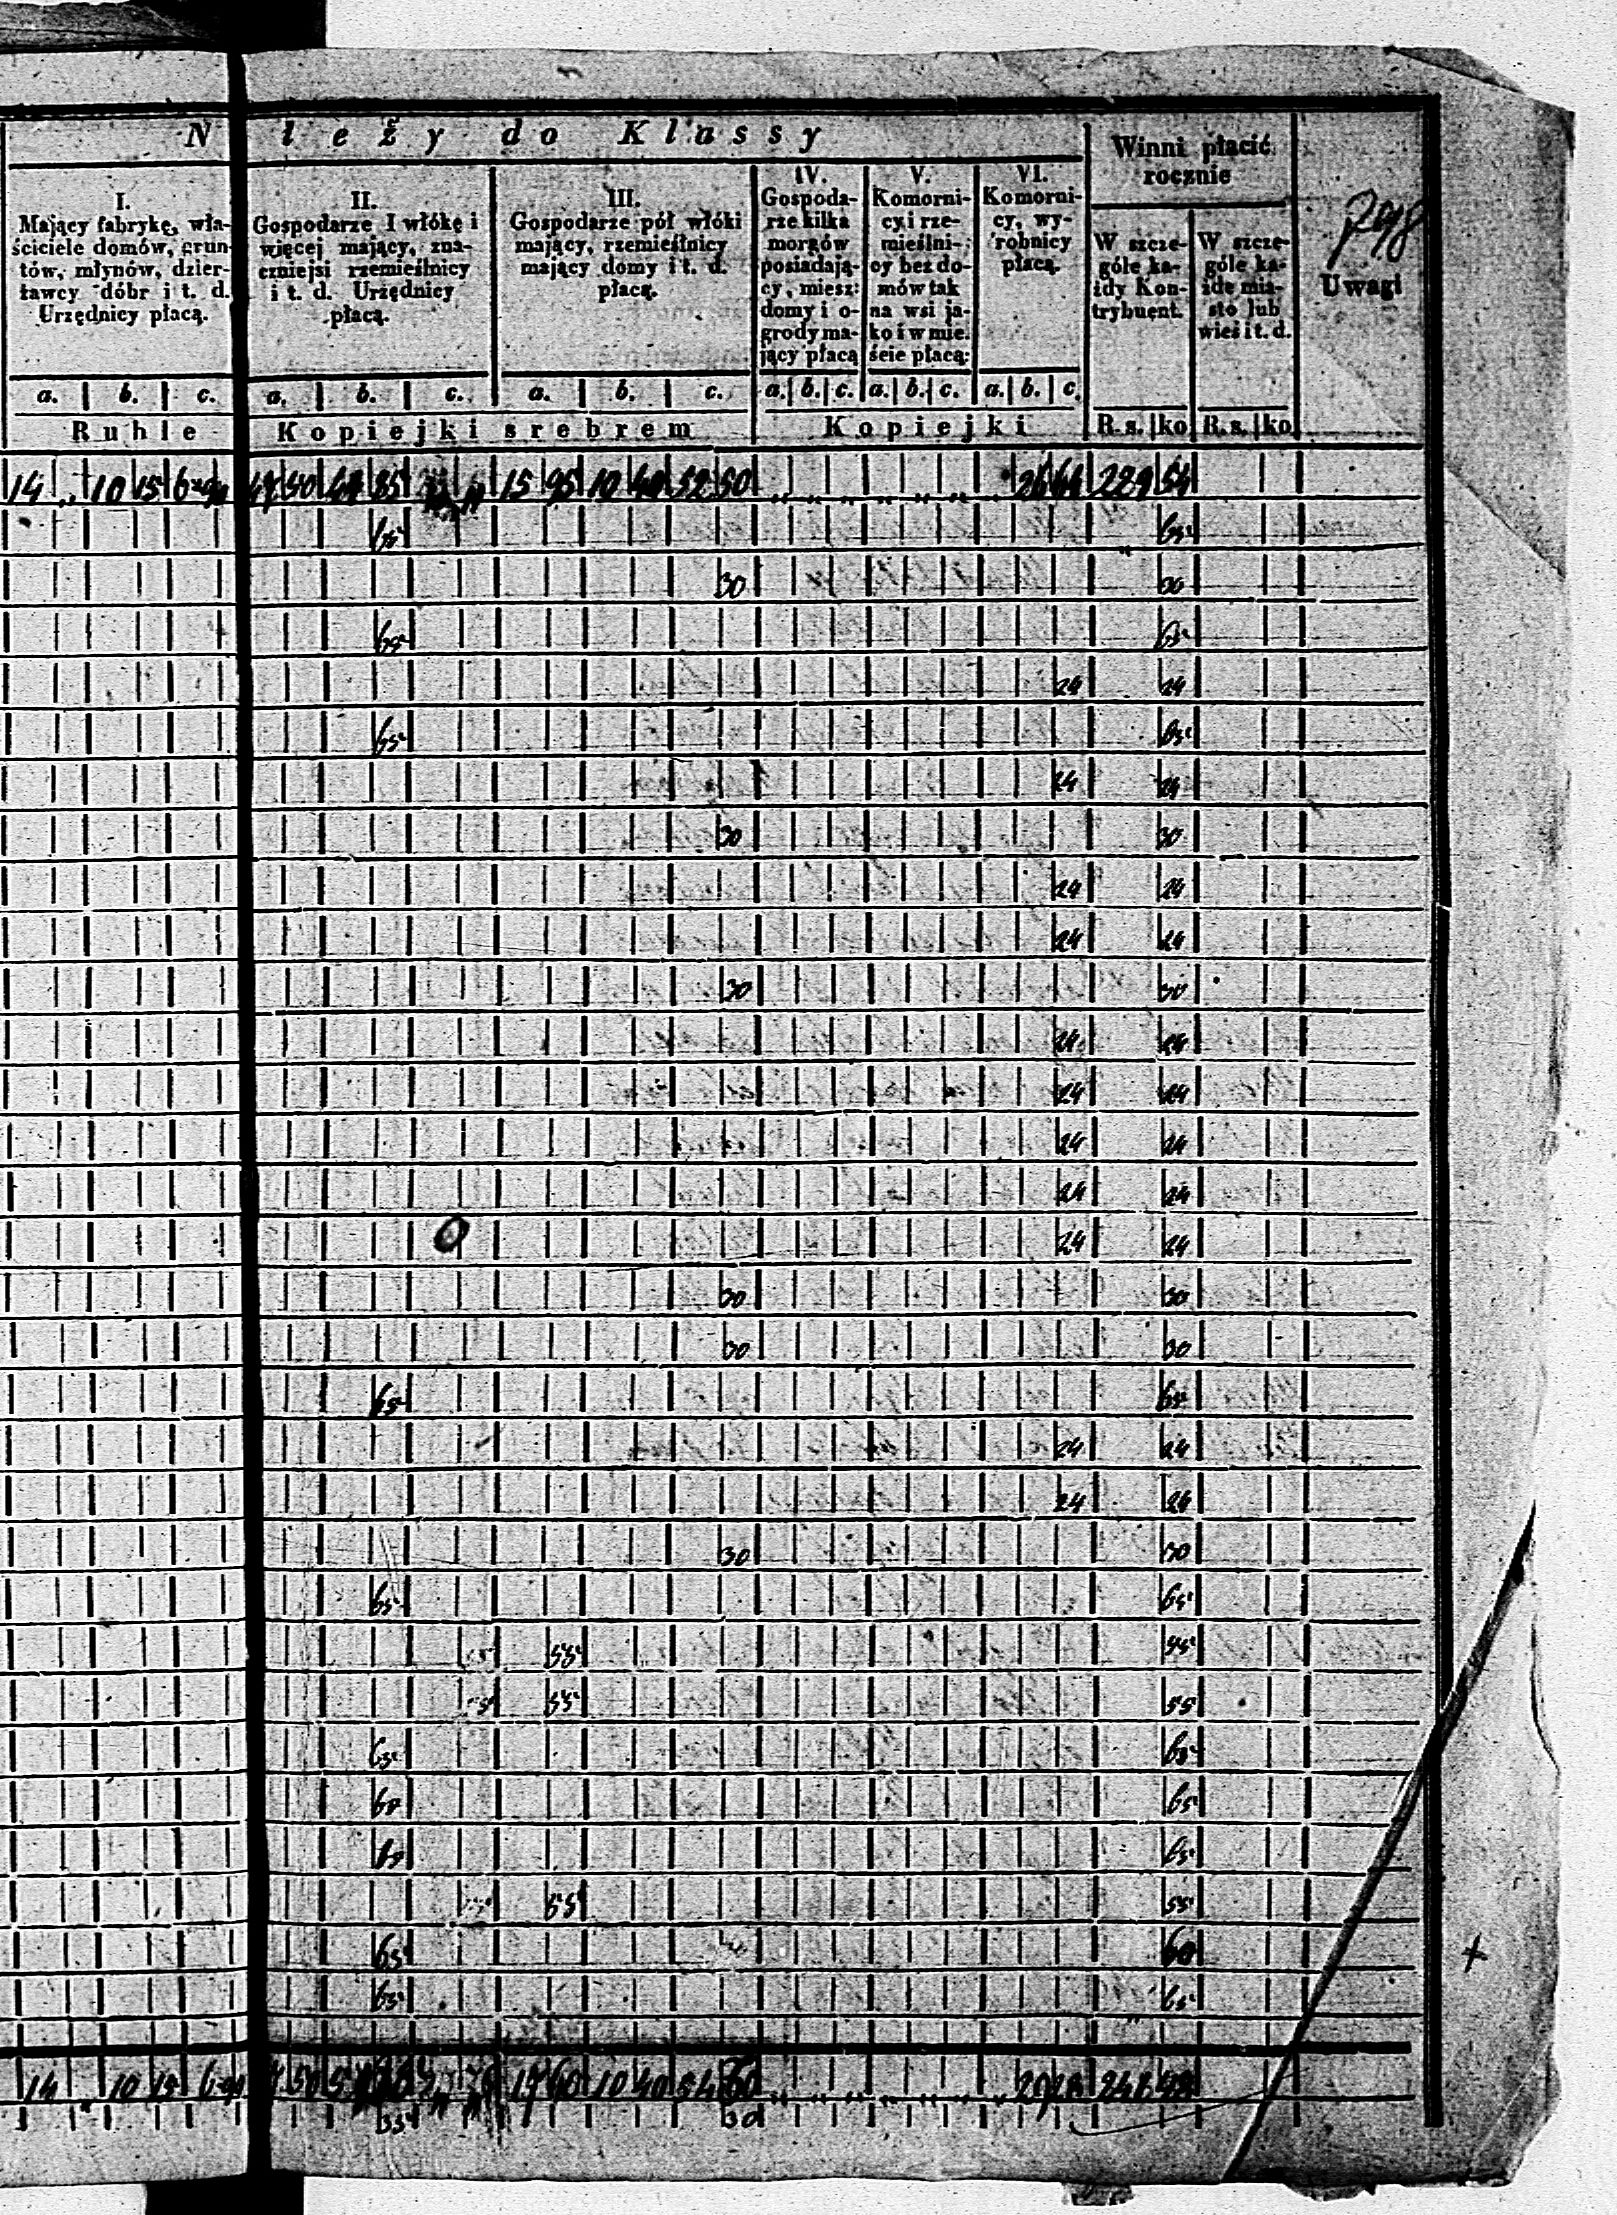 N leży do Klassy
Winni płacić rocznie
798
Uwagi
I.
Mający fabrykę, wła-
ściciele domów, grun-
tów, młynów, dzier-
żawcy dóbr i t. d.
Urzędnicy płacą.
II.
Gospodarze I włókę i
więcej mający, zna-
czniejsi rzemieślnicy
i t. d. Urzędnicy
płacą.
III.
Gospodarze pół włóki
mający, rzemieślnicy
mający domy i t. d.
płacą.
IV.
Gospoda-
rze kilka
morgów
posiadają-
cy, miesz:
domy i o-
grody ma-
jący płacą
V.
Komorni-
cy i rze-
mieślni-
cy bez do-
mów tak
na wsi ja-
ko i w mie-
ście płacą:
VI.
Komorni-
cy, wy-
robnicy
płacą.
W szcze-
góle ka-
żdy Kon-
trybuent.
W szcze-
góle ka-
żde mia-
sto lub
wieś i t. d.
a. b. c. a. b. c. a. b. c. a. b. c. a. b. c. a. b. c.
Ruble Kopiejki srebrem Kopiejki R. s. ko R. s. ko
14 10 15 50 85 15 95 10 40 52 50 26 64 229 54
65 65
30 30
65 65
24 24
65 65
24 24
30 30
24 24
24 24
30 30
24 24
24 24
24 24
24 24
24 24
30 30
30 30
65 65
24 24
24 24
30 30
65 65
55 55
55 55
65 65
65 65
65 65
55 55
65 60
65 65
14 10 15 50 17 60 10 40 54 60 29 28
30